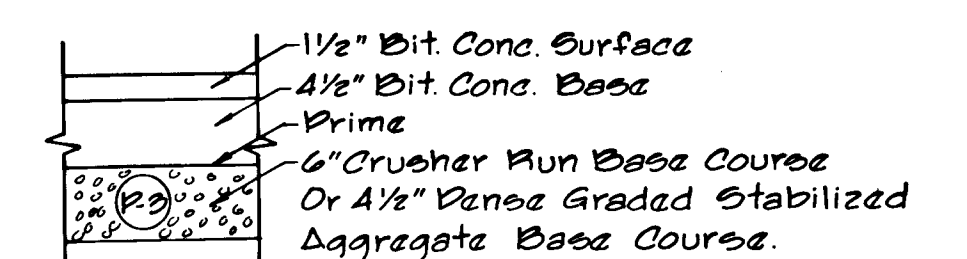 1½" Bit. Conc. Surface
4½" Bit. Conc. Base
Prime
6" Crusher Run Base Course
Or 4½" Dense Graded Stabilized
Aggregate Base Course.
P-3